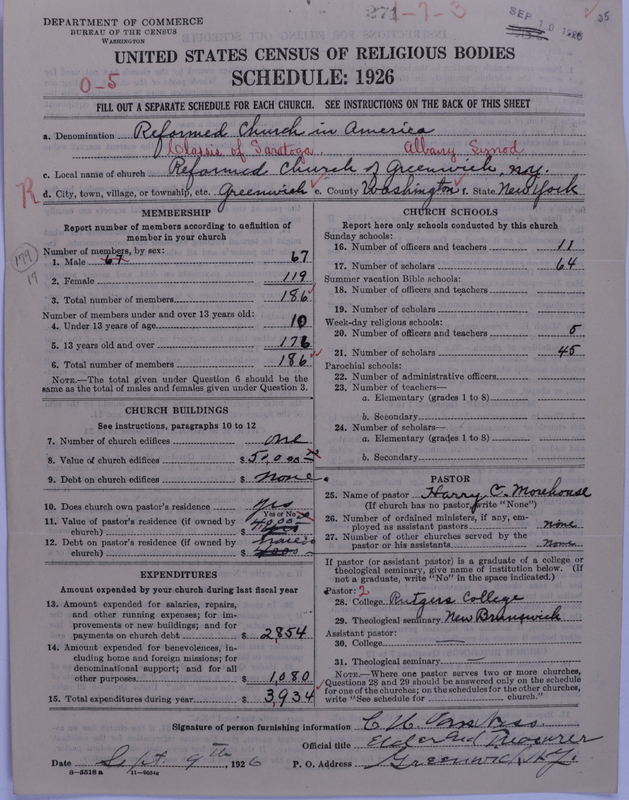 271-7-3
SEP 10 1926
35
DEPARTMENT OF COMMERCE
BUREAU OF THE CENSUS
WASHINGTON
UNITED STATES CENSUS OF RELIGIOUS BODIES
SCHEDULE: 1926
0-5
FILL OUT A SEPARATE SCHEDULE FOR EACH CHURCH. SEE INSTRUCTIONS ON THE BACK OF THIS SHEET
a. Denomination Reformed Church in America
Classis of Saratoga. Albany Synod
c. Local name of church Reformed Church of Greenwich, N.Y.
R d. City, town, village, or township, etc. Greenwich e. County Washington f. State New York
MEMBERSHIP
Report number of members according to definition of
member in your church
Number of members, by sex:
179
17
1. Male 67 67
2. Female 119
3. Total number of members 186
Number of members under and over 13 years old:
4. Under 13 years of age 10
5. 13 years old and over 176
6. Total number of members 186
NOTE.—The total given under Question 6 should be the
same as the total of males and females given under Question 3.
CHURCH BUILDINGS
See instructions, paragraphs 10 to 12
7. Number of church edifices one
8. Value of church edifices $ 50,000
9. Debt on church edifices $ none
10. Does church own pastor's residence yes
Yes or No
11. Value of pastor's residence (if owned by
church) $ 4000
12. Debt on pastor's residence (if owned by
church) $
EXPENDITURES
Amount expended by your church during last fiscal year
13. Amount expended for salaries, repairs,
and other running expenses; for im-
provements or new buildings; and for
payments on church debt $ 2854
14. Amount expended for benevolences, in-
cluding home and foreign missions; for
denominational support; and for all
other purposes $ 1,080
15. Total expenditures during year $ 3,934
CHURCH SCHOOLS
Report here only schools conducted by this church
Sunday schools:
16. Number of officers and teachers 11
17. Number of scholars 64
Summer vacation Bible schools:
18. Number of officers and teachers
19. Number of scholars
Week-day religious schools:
20. Number of officers and teachers 5
21. Number of scholars 45
Parochial schools:
22. Number of administrative officers
23. Number of teachers—
a. Elementary (grades 1 to 8)
b. Secondary
24. Number of scholars—
a. Elementary (grades 1 to 8)
b. Secondary
PASTOR
25. Name of pastor Harry C. Morehouse
(If church has no pastor, write "None")
26. Number of ordained ministers, if any, em-
ployed as assistant pastors none
27. Number of other churches served by the
pastor or his assistants none
If pastor (or assistant pastor) is a graduate of a college or
theological seminary, give name of institution below. (If
not a graduate, write "No" in the space indicated.)
Pastor: 2
28. College Rutgers College
29. Theological seminary New Brunswick
Assistant pastor:
30. College
31. Theological seminary
NOTE.—Where one pastor serves two or more churches,
Questions 28 and 29 should be answered only on the schedule
for one of the churches; on the schedules for the other churches,
write "See schedule for church."
Signature of person furnishing information C. H.
Official title Elder and Treasurer
Date Sept. 9th, 1926 P. O. Address Greenwich, N.Y.
8-5518 a 11-9034g